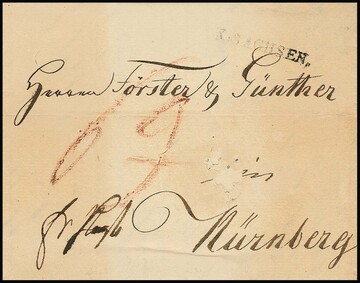 K.SACHSEN.
Herren Förster & Günther
in
Nürnberg